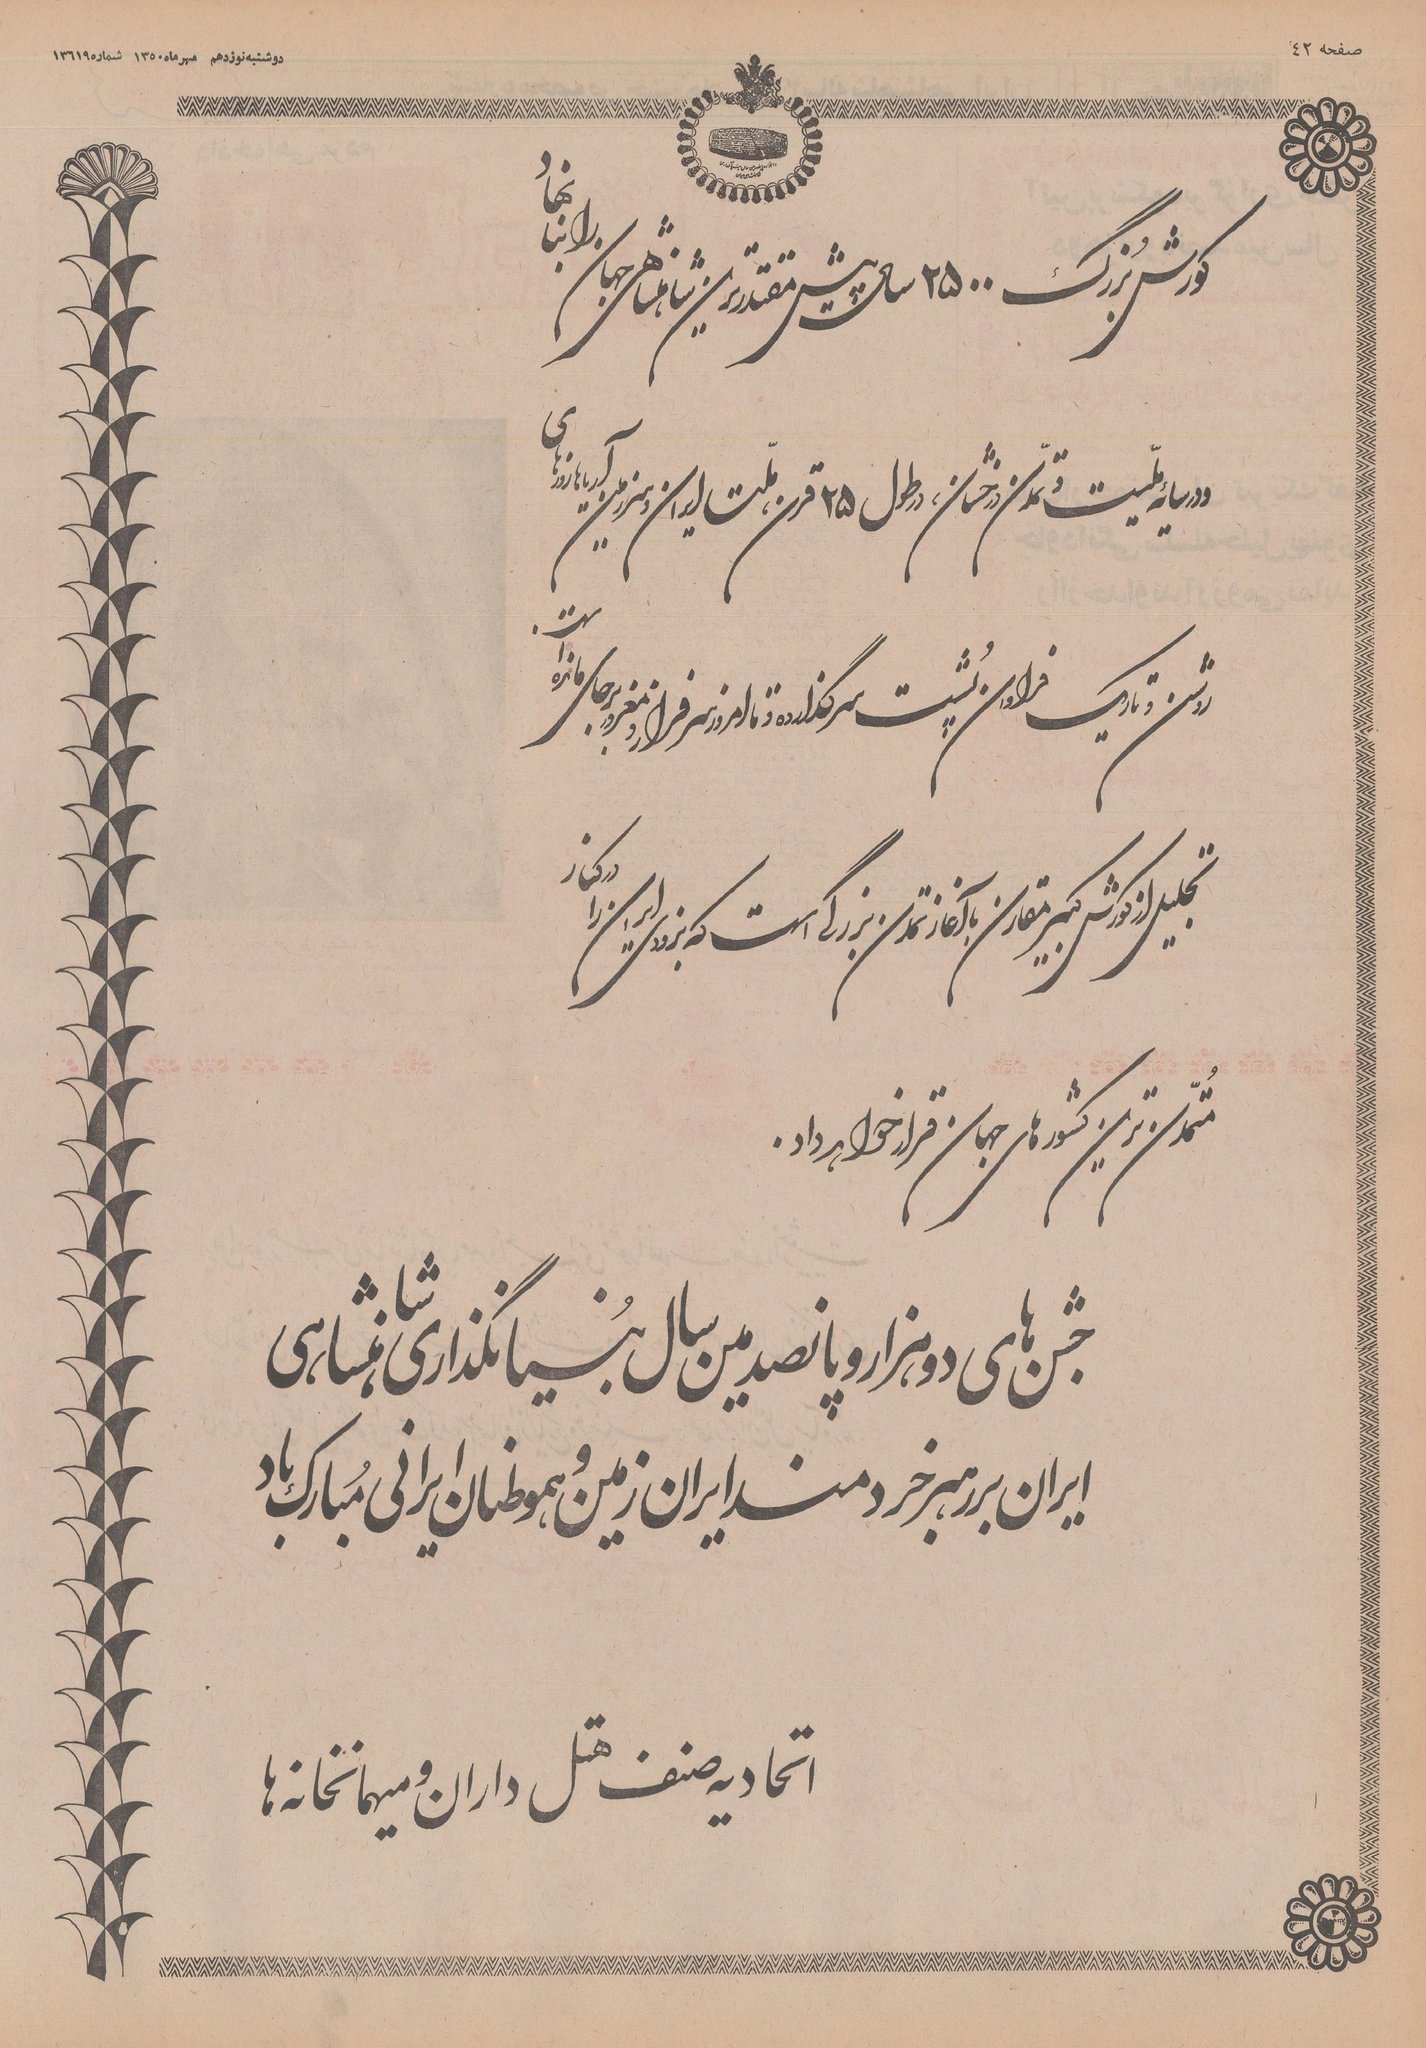 صفحه ٤٢
دوشنبه نوزدهم مهرماه ١٣٥٠ شماره ١٣٦١٩
کورش بُزرگ ۲۵۰۰ سال پیش مقتدرترین شاهنشاهی جهان را بنیاد نهاد
و در سایهٔ ملّیت و تمدّن درخشان، در طول ۲۵ قرن، ملّت ایران و سرزمین آریاها روزهای
روشن و تاریک فراوان پُشت سر گذارده و تا امروز سرفراز و مغرور برجای مانده است.
تجلیل از کورش کبیر مقارن با آغاز تمدن بزرگی است که بزودی ایران را در کنار
مُتمّدن ترین کشورهای جهان قرار خواهد داد.
جشن های دوهزار و پانصدمین سال بُنیانگذاری شاهنشاهی
ایران بر رهبر خردمند ایران زمین و هموطنان ایرانی مُبارک باد
اتحادیه صنف هتل داران و میهمانخانه ها